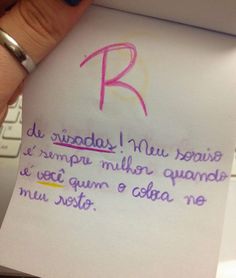 R
de risadas! Meu sorriso
é sempre melhor quando
é você quem o coloca no
meu rosto.